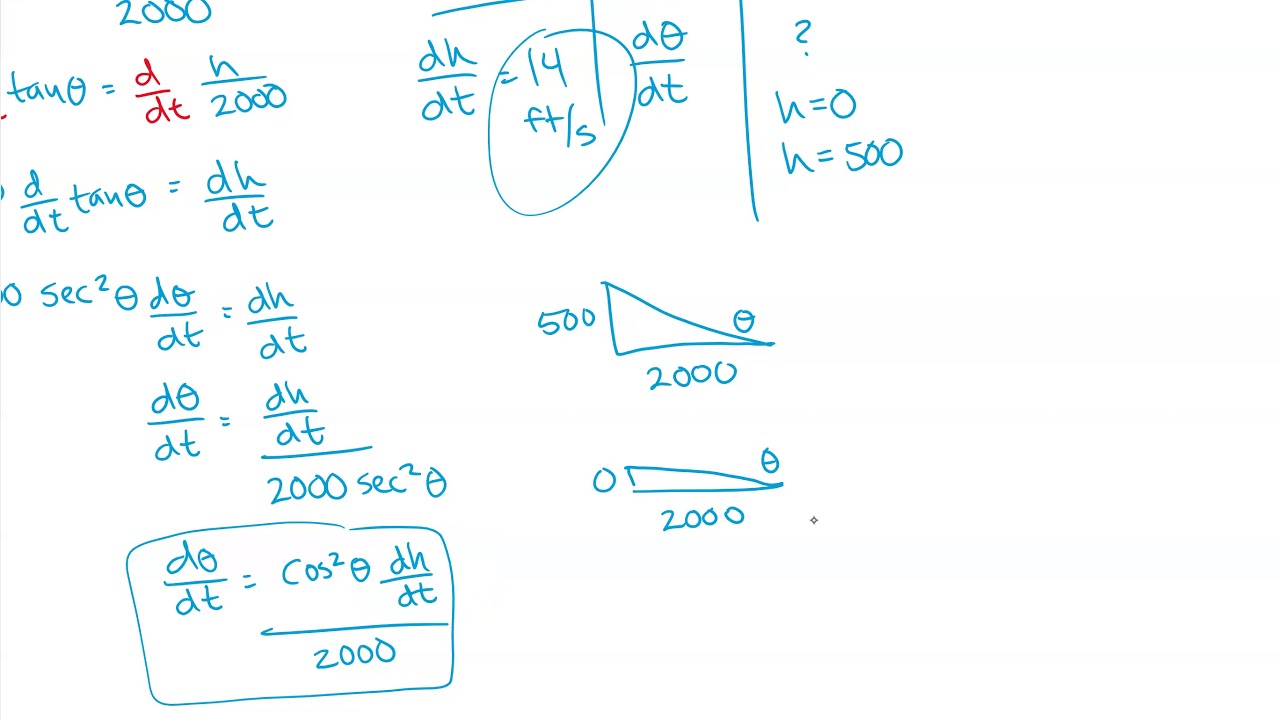 2000
tanθ = d/dt h/2000
d/dt tanθ = dh/dt
0 sec²θ dθ/dt = dh/dt
dθ/dt = dh/dt / 2000 sec²θ
dθ/dt = cos²θ dh/dt / 2000
dh/dt = 14 ft/s
dθ/dt
?
h=0
h=500
500
θ
2000
0
θ
2000